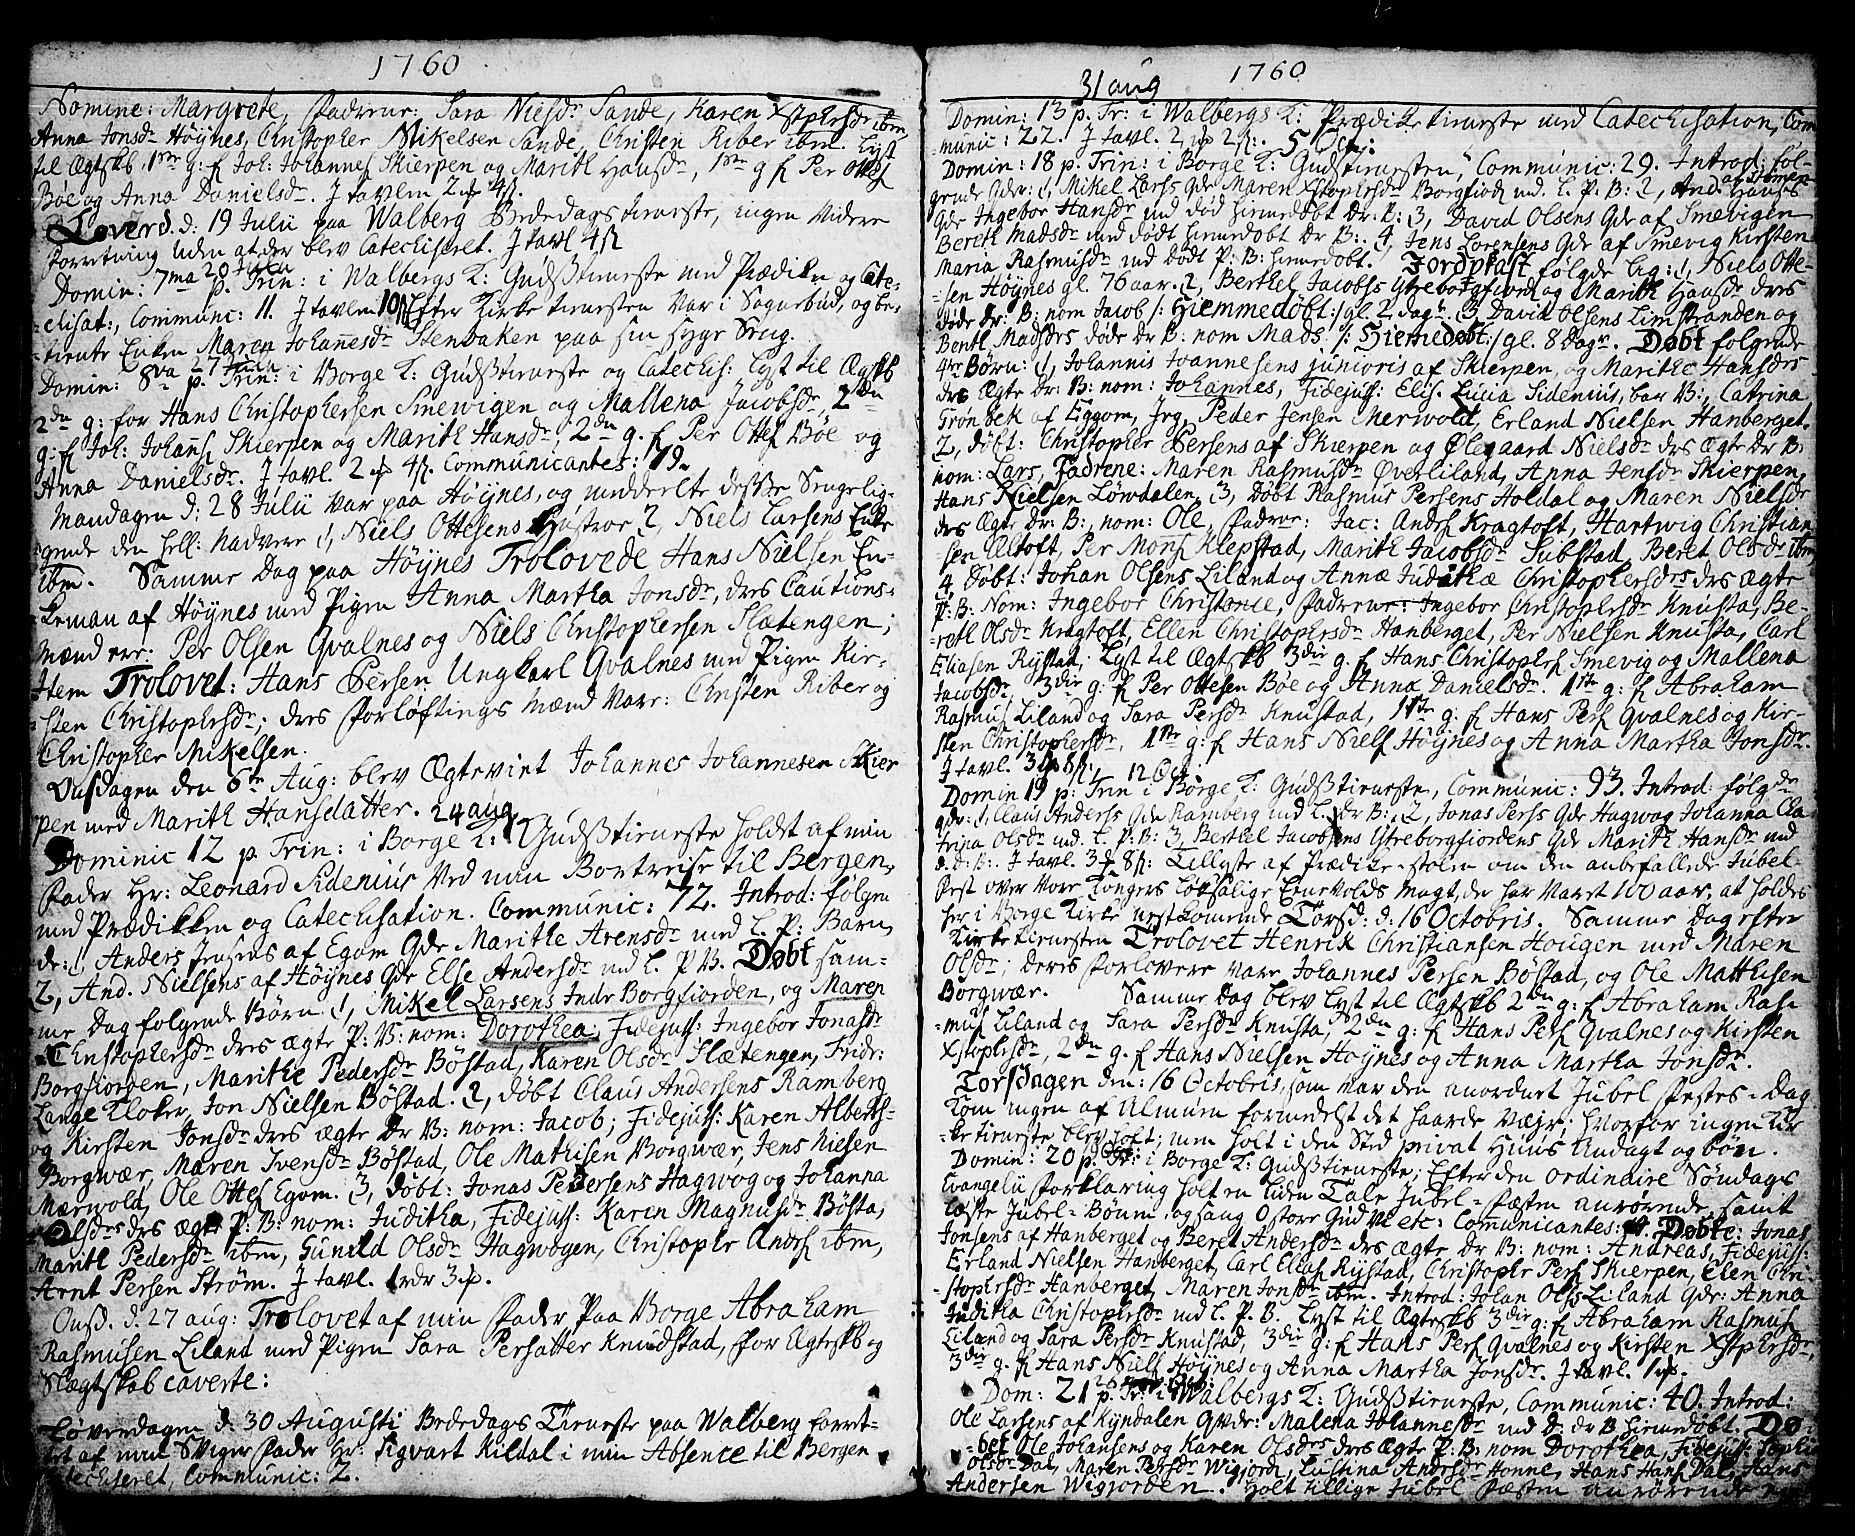 1760
Nomine: Margrete, Fadrene: Sara Nielsdr Sande, Karen Xstphersdr ibm,
Anna Jonsdr Høynes, Christopher Mikelsen Sande, Christen Riber ibm. Lyst
til Ægtskb, 1ste g: f Joh: Johannes Skierpen og Marith Hansdr, 1ste g f Per Ottes
Bøe og Anna Danielsdr. J tavlen 2
Løverd. d: 19 Julii paa Walberg Bededags tieneste, ingen videre
forretning uden at der blev Catechiseret. J tavl 4
20 Julii
Domin: 7ma p. Trin: i Walbergs K: Gudstieneste med Prædiken og Cate-
-chisat:, Communic: 11. J tavlen 10 Efter Kirke tienesten var i Sognebud, og be-
tiente Enken Maren Johannesdr Stenbaken paa sin syge Seng.
27 Julii
Domin: 8va p. Trin: i Borge K: Gudstieneste og Catechis: Lyst til Ægtskb
2den g: for Hans Christophersen Smevigen og Mallena Jacobsdr, 2den
g: f Joh: Johans Skierpen og Marith Hansdr, 2den g. f Per Ottes Bøe og
Anna Danielsdr. J tavl. 2 4. Communicantes: 79.
Mandagen d: 28 Julii var paa Høynes, og meddeelte desse Sengelig-
gende den hell: Nadvere 1, Niels Ottesens Hustroe 2, Niels Larsens Enke
ibm. Samme Dag paa Høynes Trolovede Hans Nielsen En-
keman af Høynes med Pigen Anna Martha Jonsdr, deres Cautions-
Mænd ere: Per Olsen Qvalnes og Niels Christophersen Slætengen;
Item Trolovet: Hans Persen Ungkarl Qvalnes med Pigen Kir-
-sten Christophersdr; deres Forløftings Mænd vare: Christen Riber og
Christopher Mikelsen.
Onsdagen den 6te Aug: blev Ægteviet Johannes Johannesen Skier
pen med Marith Hansdatter. 24 aug
Dominic 12 p. Trin: i Borge K: Gudstieneste holdt af min
Fader Hr: Leonard Sidenius ved min Bortreise til Bergen,
med Prædikken og Catechisation. Communic: 72. Introd: følgen
de: 1, Anders Jensens af Egom Qde Marithe Arensdr med E. P: Barn,
2, And. Nielsens af Høynes Qde Else Andersdr md E. P B. Døbt sam-
me Dag følgende Børn 1, Mikel Larsens Indr Borgfiorden, og Maren
Christophersdr deres ægte P: B: nom: Dorothea, Fidejuss: Ingebor Jonasdr
Borgfiorden, Marithe Pedersdr Bøstad, Karen Olsdr Slætengen, Fridr:
Lange Kloker, Jon Nielsen Bøstad. 2, døbt Claus Andersens Ramberg
og Kirsten Jonsdr deres ægte Dr B: nom: Jacob; Fidejuss: Karen Alberts-
Borgwær, Maren Svensdr Bøstad, Ole Mathisen Borgwær, Jens Nielsen
Mærwold, Ole Ottes Egom. 3, døbt: Jonas Pedersens Hagwog og Johanna
Olsdrs deres ægte P: B: nom: Juditha, Fidejuss: Karen Magnusdr Bøsta,
Marith Pedersdr ibm, Gunild Olsdr Hagwogen, Christopher Anders ibm,
Arnt Persen Strøm. J tavl. 1rdr 3.
Onsd. d. 27 aug: Trolovet af min Fader Paa Borge Abraham
Rasmusen Liland med Pigen Sara Persatter Knudstad, for Ægteskb og
Slægtskab caverte:
Løverdagen d. 30 Augusti Bededags Tieneste paa Walberg forret-
tet af min Sviger Fader Hr: Sigvart Kildal i min Absence til Bergen
Catechiseret, Communic: 2.
1760
31 aug
Domin: 13 p. Tr: i Walbergs K: Prædiketieneste med Catechisation, Com
-munic: 22. J tavl. 2 2. 5 Oct:
Domin: 18 p. Trin: i Borge K: Gudstienesten, Communic: 29. Introd: føl-
gende Qdr: 1, Mikel Larss Qde Maren Xstophersdr Borgfiord md. E. P. B: 2, And. Hanses
Qde Ingebor Hansdr md død hiemedøbt Dr. B: 3, David Olsens Qde af Smevigen
Bereth Madsdr med dødt hiemedøbt Dr B:. 4, Jens Lorensens Qde af Smevig Kirsten
Maria Rasmusdr md dødt P: B: hiemedøbt. Jordpkast følgde Lig: 1, Niels Otte-
-sen Høynes gl. 76 aar. 2, Berthel Jacobss Ytreborgfiord og Marith Hansdr dres
døde dr: B: nom Jacob /: Hiemmedøbt:/ gl. 2 dage. 3 David Olsens Limstranden og
Beret Madsdrs døde dr B: nom Mads. /: Hiemedøbt:/ gl. 8 Dagr. Døbt følgende
4re Børn: 1, Johannis Joannesens junioris af Skierpen, og Marithe Hansdrs
drs Ægte dr: B: nom: Johannes, Fidejuss: Elis. Lucia Sidenius, bar B:, Catrina
Grønbek af Eggom, Jrg. Peder Jensen Merwold, Erland Nielsen Hanberget.
2, døbt: Christopher Persens af Skierpen og Ølegaard Nielsdr drs Ægte dr B:
nom: Lars, Fadrene: Maren Rasmusdr Øverliland, Anna Jensdr Skierpen,
Hans Nielsen Løwdalen 3, Døbt Rasmus Persens Holdal og Maren Nielsdr
drs Ægte Dr: B:, nom: Ole, Fadrer: Jac: Anders Kragtoft, Hartwig Christian
-sen Æltoft, Per Mons Klepstad, Marith Jacobsdr Substad, Beret Olsdr ibm,
4, Døbt: Johan Olsens Liland og Annæ Judithæ Christophersdrs drs Ægte
P: B: Nom: Ingebor Christence, Fadrene: Ingebor Christophersdr Knusta, Be-
-reth Olsdr Kragtoft, Ellen Christophersdr Hanberget, Per Nielsen Knusta, Carl
Eliasen Rystad, Lyst til Ægtskb 3die g. f Hans Christophers Smevig og Mallena
Jacobsdr, 3die g: f Per Ottesen Bøe og Anna Danielsdr. 1ste g: f Abraham
Rasmus Liland og Sara Persdr Knustad, 1ste g: f Hans Pers Qvalnes og Kir-
sten Christophersdr, 1ste g: f Hans Niels Høynes og Anna Martha Jonsdr.
J tavl. 3 8. 12 Oct:
Domin 19 p: Trin i Borge K: Gudstieneste, Communic: 93. Introd: følgde
qdr: 1, Claus Anderss Qde Ramberg md E. dr B:. 2, Jonas Perss Qde Hagwog Johanna Ca
trina Olsdr md. E. P: B: 3 Berthel Jacobsens Ytreborgfiordens Qde Marith Hansdr md
d. d: B:. J tavl. 3 8: Tillyste af Prædike-stolen om den anbefallede Jubel-
Fest over vore Kongers Løfsalige Enevolds Magt, der har varet 100 aar, at holdes
her i Borge Kirke nestkomende Torsd: d: 16 Octobris. Samme Dag efter
Kirketienesten Trolovet Henrik Christiansen Hougen med Maren
Olsdr; deris Forlovere vare Johannes Persen Bøstad, og Ole Matthisen
Borgwær. Samme Dag blev Lyst til Ægtskb 2den g: f Abraham Ras-
-mus Liland og Sara Persdr Knusta, 2den g: f Hans Pers Qvalnes og Kirsten
Xstophrsdr, 2den g. f Hans Nielsen Høynes og Anna Martha Jonsdr.
Torsdagen den: 16 Octobris, som var den anordnet Jubel Festes-Dag
kom ingen af Almuen formedelst det haarde Vejr; hvorfor ingen Kir
-ketieneste blev holt; men holt i den Sted privat Huus Andagt og bøn.
Domin: 20 p. Tr: i Borge K: Gudstieneste; Efter den ordinaire Søndags
Evangelii Forklaring holt en liden Tale Jubel-Festen anrørende, samt
læste Jubel-Bønnen, og sang O store Gud Vi etc: Comunicantes: Døbte: Jonas
Jonsens af Hanberget og Beret Andersdr drs ægte Dr B: nom: Andreas, Fidejuss:
Erland Nielsen Hanberget, Carl Elias Rystad, Christopher Pers Skierpen, Elen Chri-
-stophersdr Hanberget, Maren Jonsdr ibm. Introd: Johan Olss Liland Qdr: Anna
Juditha Christophersdr md E. P. B. Lyst til Ægtskb 3die g: f Abraham Rasmus
Liland og Sara Persdr Knustad, 3die g: f Hans Pers Qvalnes og Kirsten Xstphersdr,
3die g. f Hans Niels Høynes og Anna Martha Jonsdr. J tavl.
Dom: 21 p. Tr: i Walbergs K: Gudstieneste, Communic: 40. Introd:
Ole Larsens af Kyndalen Qvdr: Malena Johannesdr md D. dr B hiemdøbt. Dø
-bet Ole Johansens og Karen Olsdrs drs ægte P: B: nom Dorothea, Fidejuss: Sophie
Olsdr Dal, Maren Persdr Wigjorde, Lustina Andrsdr Honne, Hans Hans Dal, Hans
Andersen Wegjorden. Holt tillige Jubel Festen anrørende